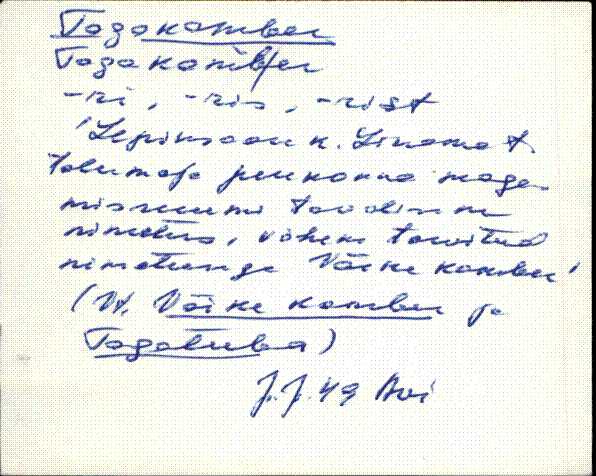 Tagakamber
Tagakamber
-ri, -ris, -rist
'Lepinsaare k. Linama t.
talumaja peakonna maga-
misruumi tavaline
nimetus, vähem tarvitud
nimetusega Väike kamber'
(Vt. Väike kamber ja
Tagatuba)
J.J. 49 Avi